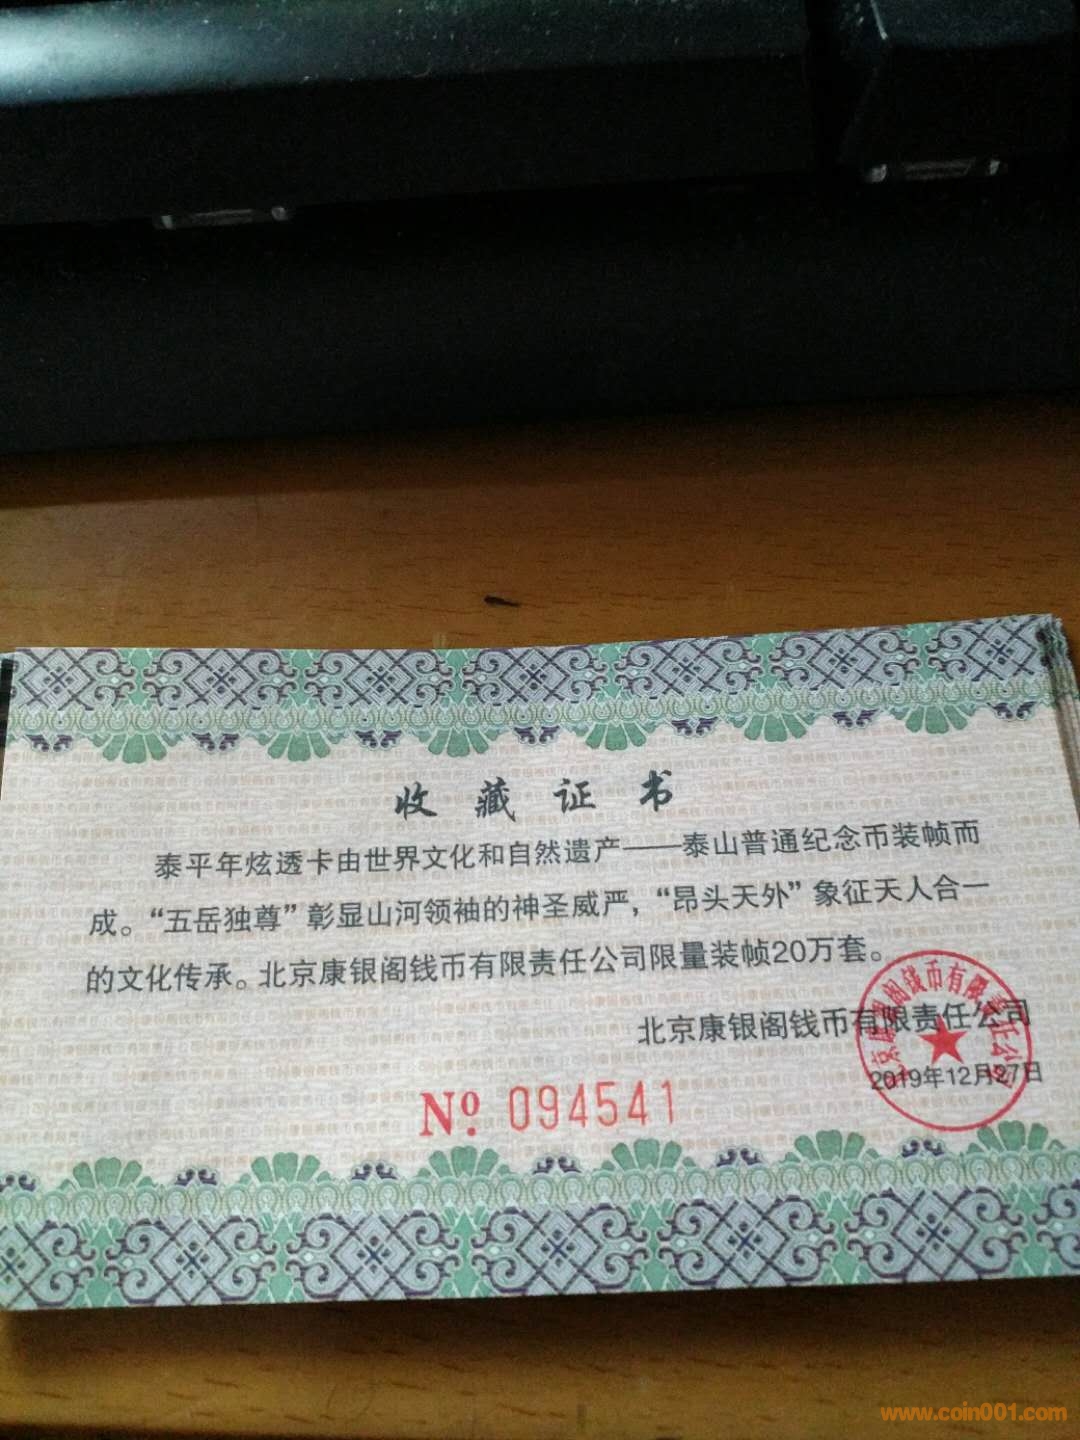 收藏证书
泰平年炫透卡由世界文化和自然遗产——泰山普通纪念币装帧而
成。“五岳独尊”彰显山河领袖的神圣威严，“昂头天外”象征天人合一
的文化传承。北京康银阁钱币有限责任公司限量装帧20万套。
北京康银阁钱币有限责任公司
2019年12月27日
北京康银阁钱币有限责任公司
Nº 094541
www.coin001.com